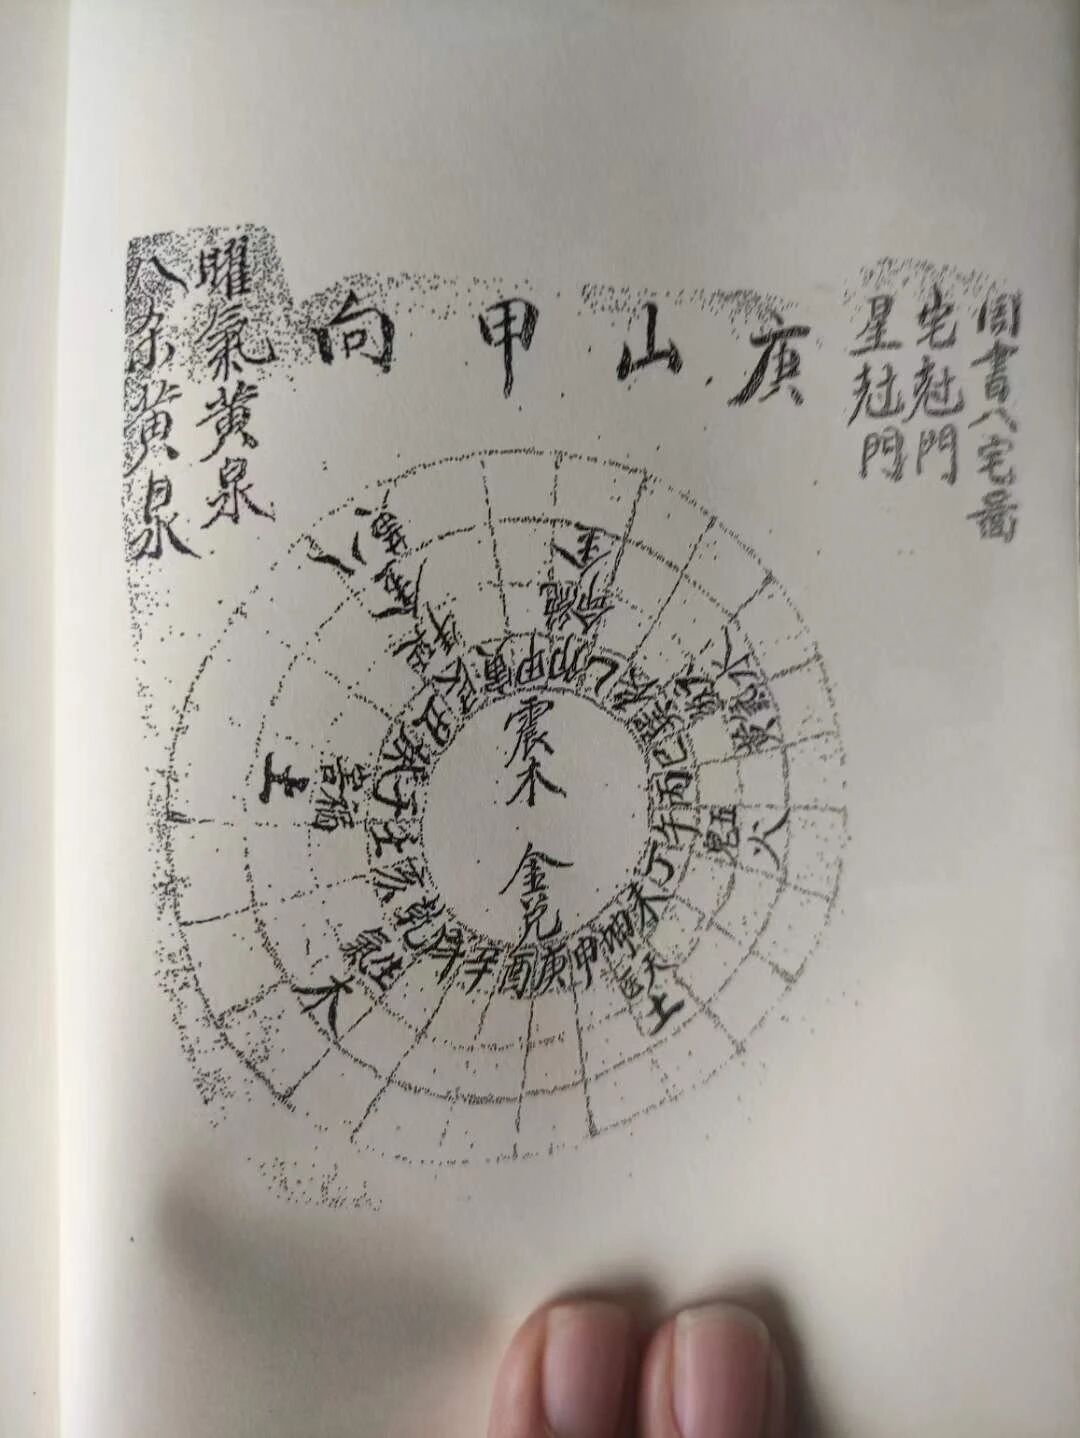 周書八宅啚
宅尅門
星尅門
庚山甲向
曜氣黄泉
八杀黄泉
震木
金兌
寅甲卯乙辰巽巳丙午丁未坤申庚酉辛戌乾亥壬子癸丑艮
金
命絕
水
火
五鬼
天醫
土
生氣
木
土